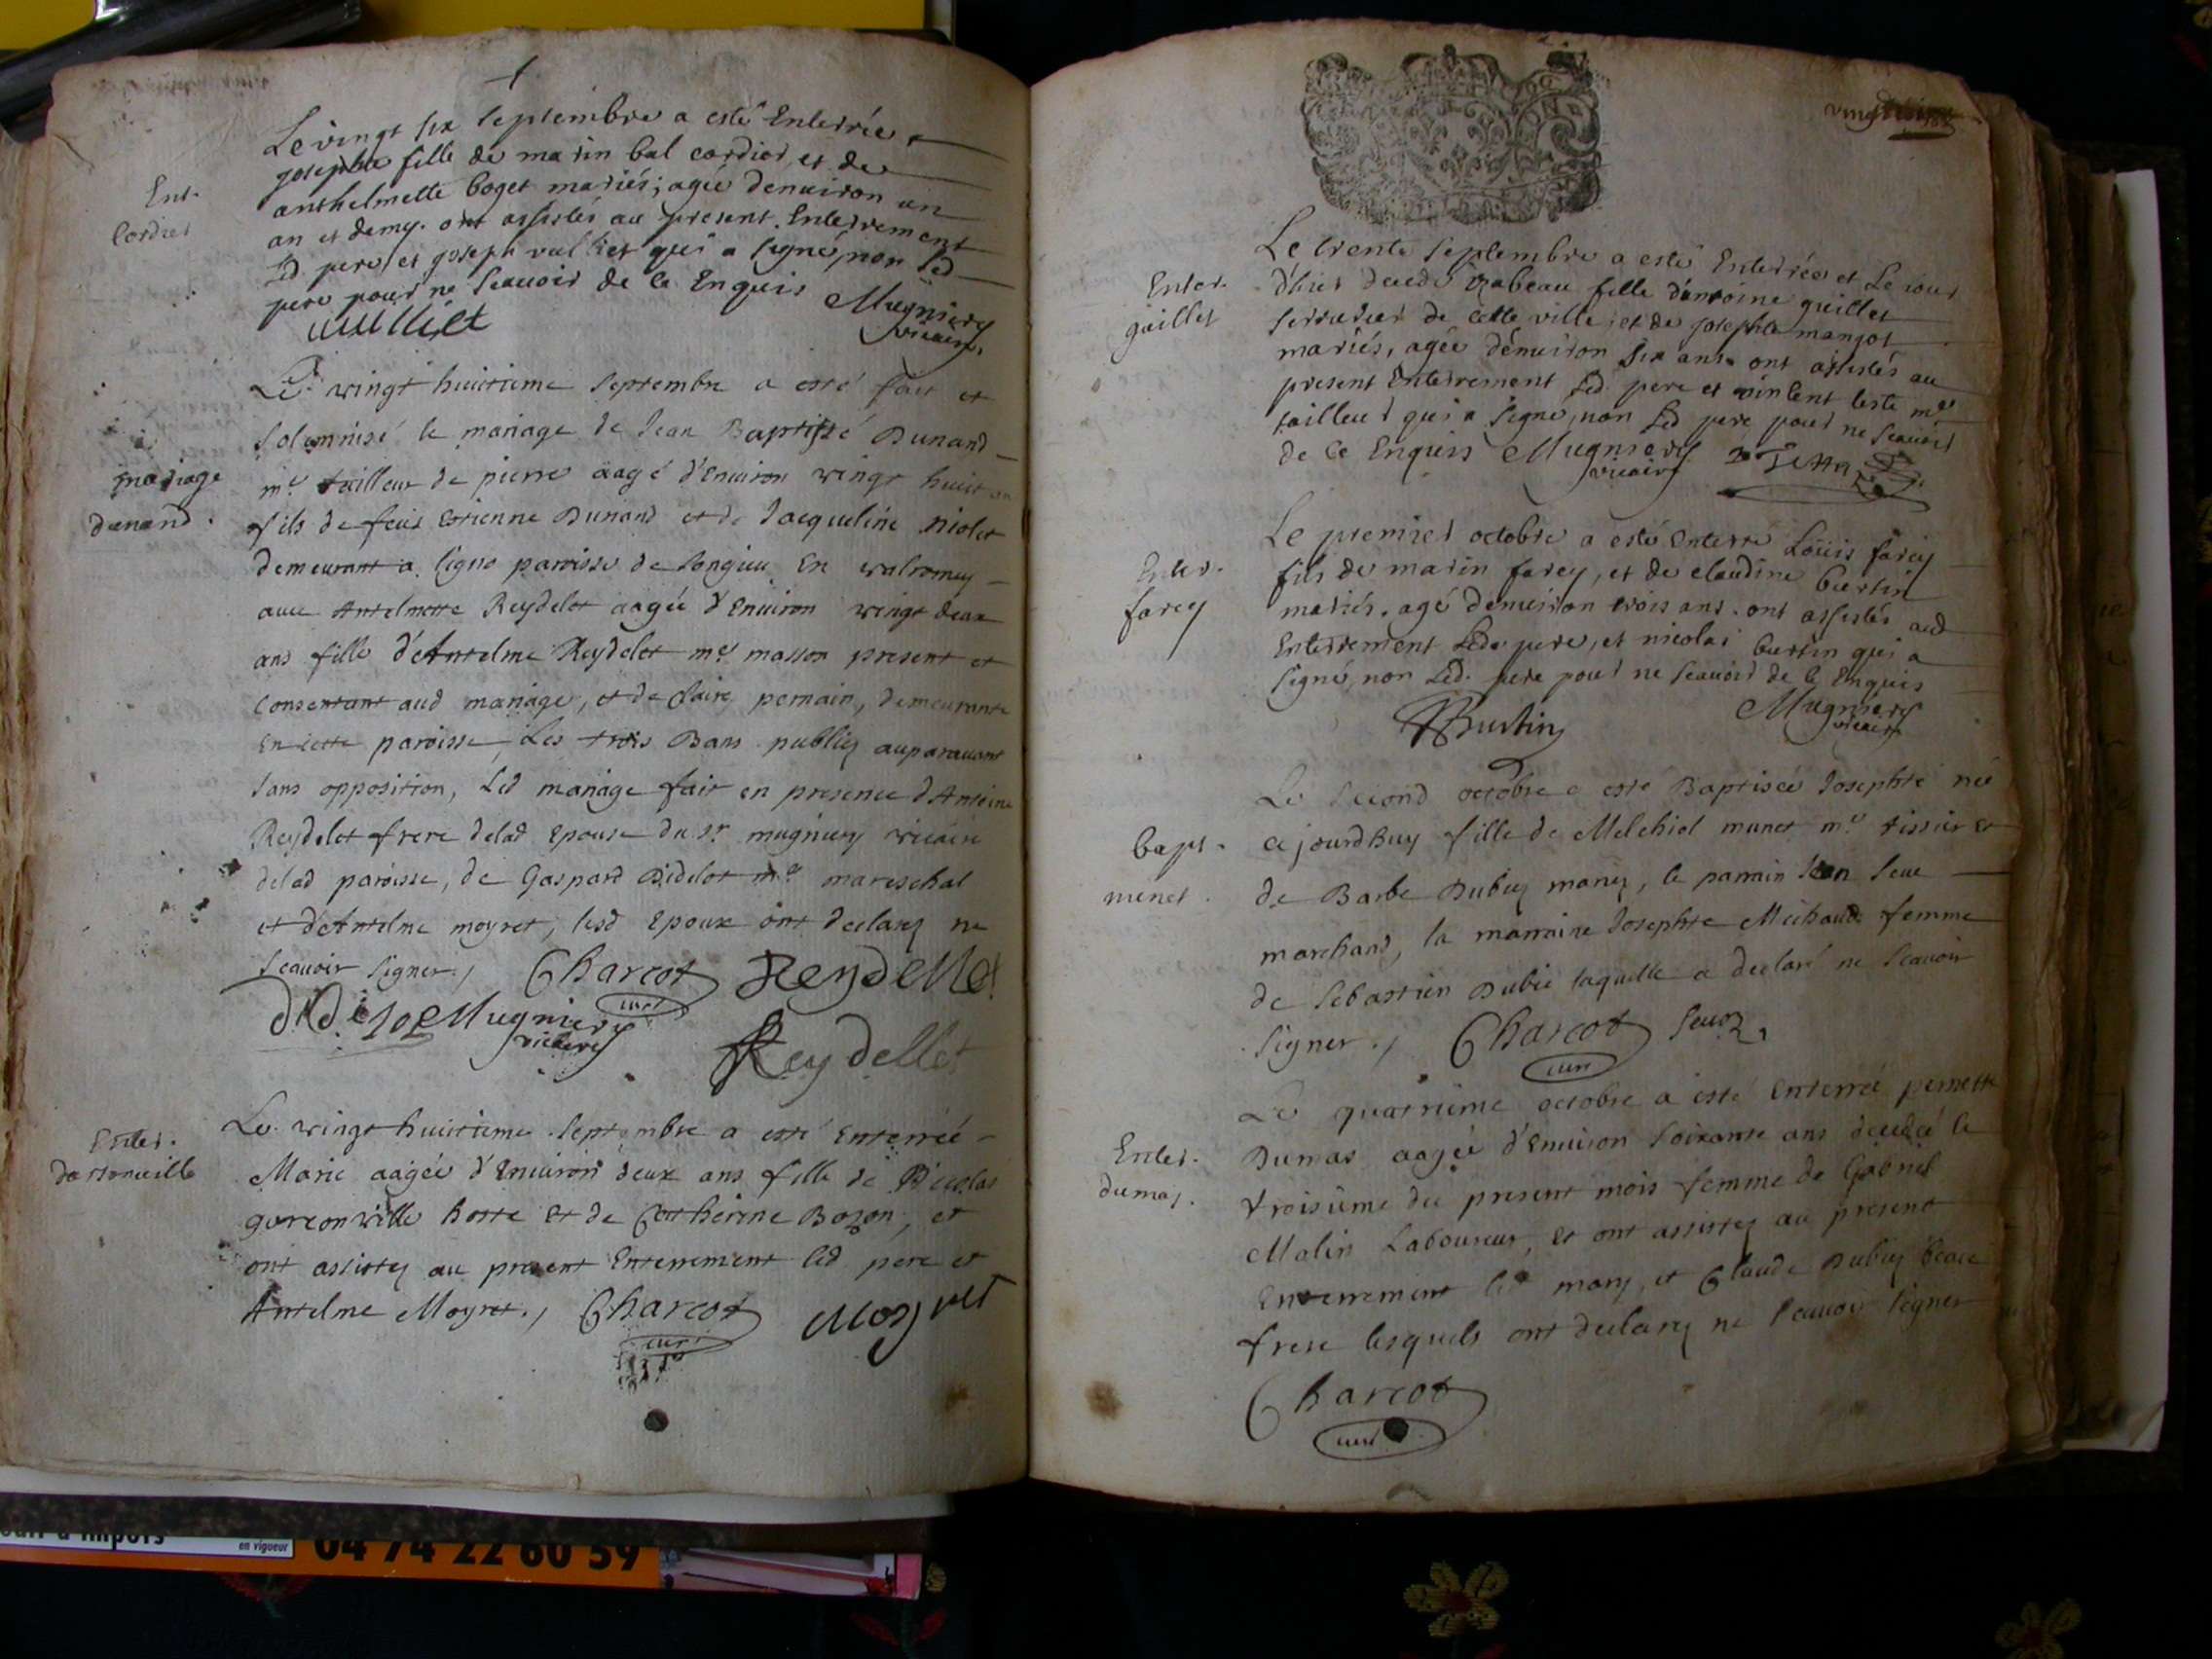 Le vingt six septembre a esté Enterrée
josephte fille de marin bal cordier, et de
anthelmette boget mariés; agée denuiron un
an et demy. ont assistés au present Enterrement
Led pere, et joseph vulliet qui a signé, non led
pere pour ne scauoir de ce Enquis
Ent.
Cordier
Mugniery
vicaire
vulliet
Le vingt huictieme septembre a esté fait et
solemnisé le mariage de Jean Baptiste Dunand
mariage
dunand.
me tailleur de pierre aagé d'Enuiron vingt huict
fils de feus Estienne Dunand et de Jacqueline niolet
demeurant a ligno paroisse de songieu En valromey
auec Antelmette Reydelet aagée d'Enuiron vingt deux
ans fille d'Antelme Reydelet me masson present et
consentant aud mariage, et de Claire pernain, demeurante
en cette paroisse, Les trois Bans publiez auparauant
sans opposition, Led mariage fait en presence d'Antoine
Reydelet frere delad Epouse du sr mugniery vicaire
delad paroisse, de Gaspard Didelot me mareschal
et d'Antelme moyret, lesd Epoux ont declarez ne
scauoir signer.
Charcot
curé
Reydellet
Mugniery
vicaire
Reydellet
Enter.
Le vingt huictieme septembre a esté Enterrée
Marie aagée d'Enuiron deux ans fille de Nicolas
garconville hoste Et de Catherine Bozon, et
ont assistez au present Enterrement led pere et
Antelme Moyret.
Charcot
curé
Moyret
vingt
Le trente septembre a esté Enterrée et Le iour
d'hier decedé Yzabeau fille d'antoine guillet
Enter.
guillet
serrurier de cette ville, et de josephte manjot
mariés, agée d'enuiron six ans. ont assistés au
present Enterrement Led. pere et vincent teste me
tailleur qui a signé, non Led pere pour ne scauoir
de ce Enquis
Mugniery
vicaire
Le premier octobre a esté enterré Loüis farey
Enter.
farey
fils de marin farey, et de claudine burtin
mariés. agé denuiron trois ans. ont assistés aud
Enterrement Led. pere, et nicolas burtin qui a
signé, non Led. pere pour ne scauoir de ce Enquis
Burtin
Mugniery
vicaire
Le second octobre a esté Baptisée Josephte née
bapt.
munet.
cejourdhuy fille de Melchiol munet me tissier et
de Barbe Dubiez mariez, le parrain Jean seue
marchand, la marraine Josephte Michaud femme
de Sebastien Dubié laquelle a declaré ne scauoir
signer.
Charcot
curé
Le quatrieme octobre a esté Enterrée pernette
Enter.
dumas.
Dumas aagée d'Enuiron soixante ans decedée le
troisieme du present mois femme de Gabriel
Malin Laboureur, Et ont assistez au present
Enterrement led mary, et Claude Dubiez beau
frere lesquels ont declarez ne scauoir signer
Charcot
curé
en vigueur
04 74 22 60 59